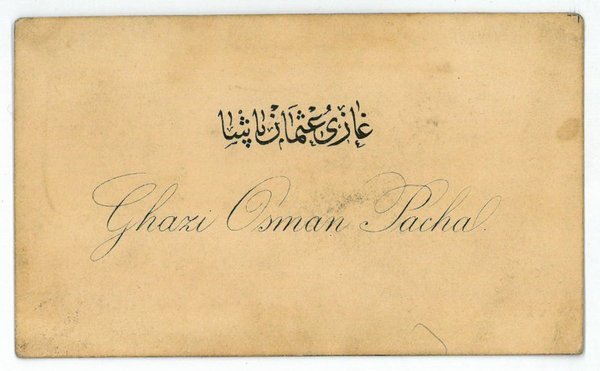 غازى عُثمان پاشا
Ghazi Osman Pacha.